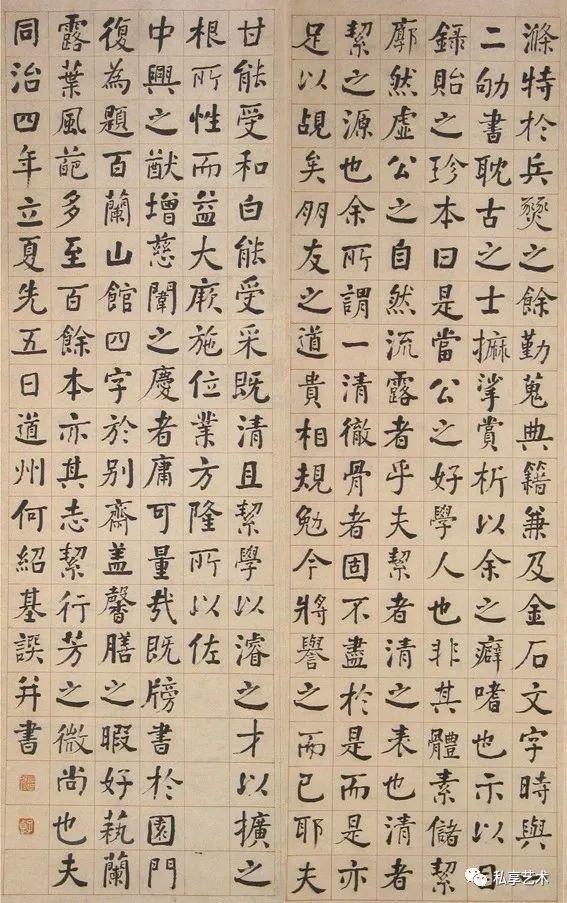 滌特於兵燹之餘勤蒐典籍兼及金石文字時與
二劬書耽古之士擵挲賞析以余之癖嗜也示以目
錄貽之珍本曰是當公之好學人也非其體素儲絜
廓然虛公之自然流露者乎夫絜者清之表也清者
絜之源也余所謂一清徹骨者固不盡於是而是亦
足以覘矣朋友之道貴相規勉今將譽之而已耶夫
甘能受和白能受采既清且絜學以濬之才以擴之
根所性而益大厥施位業方隆所以佐
中興之猷增慈闈之慶者庸可量哉既牓書於園門
復為題百蘭山館四字於別齋盖馨膳之暇好蓺蘭
露葉風葩多至百餘本亦其志絜行芳之微尚也夫
同治四年立夏先五日道州何紹基譔并書
私享艺术